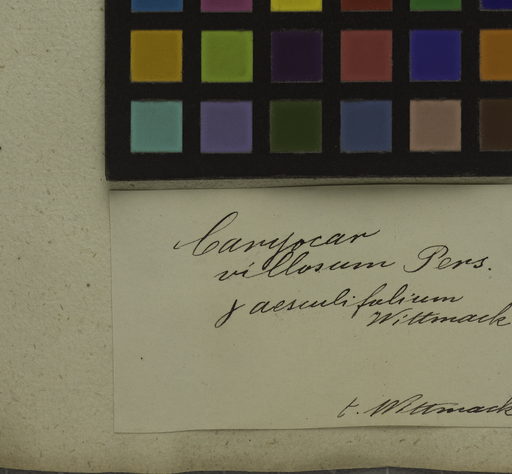 Caryocar
villosum Pers.
γ aesculifolium
Wittmack
t. Wittmack